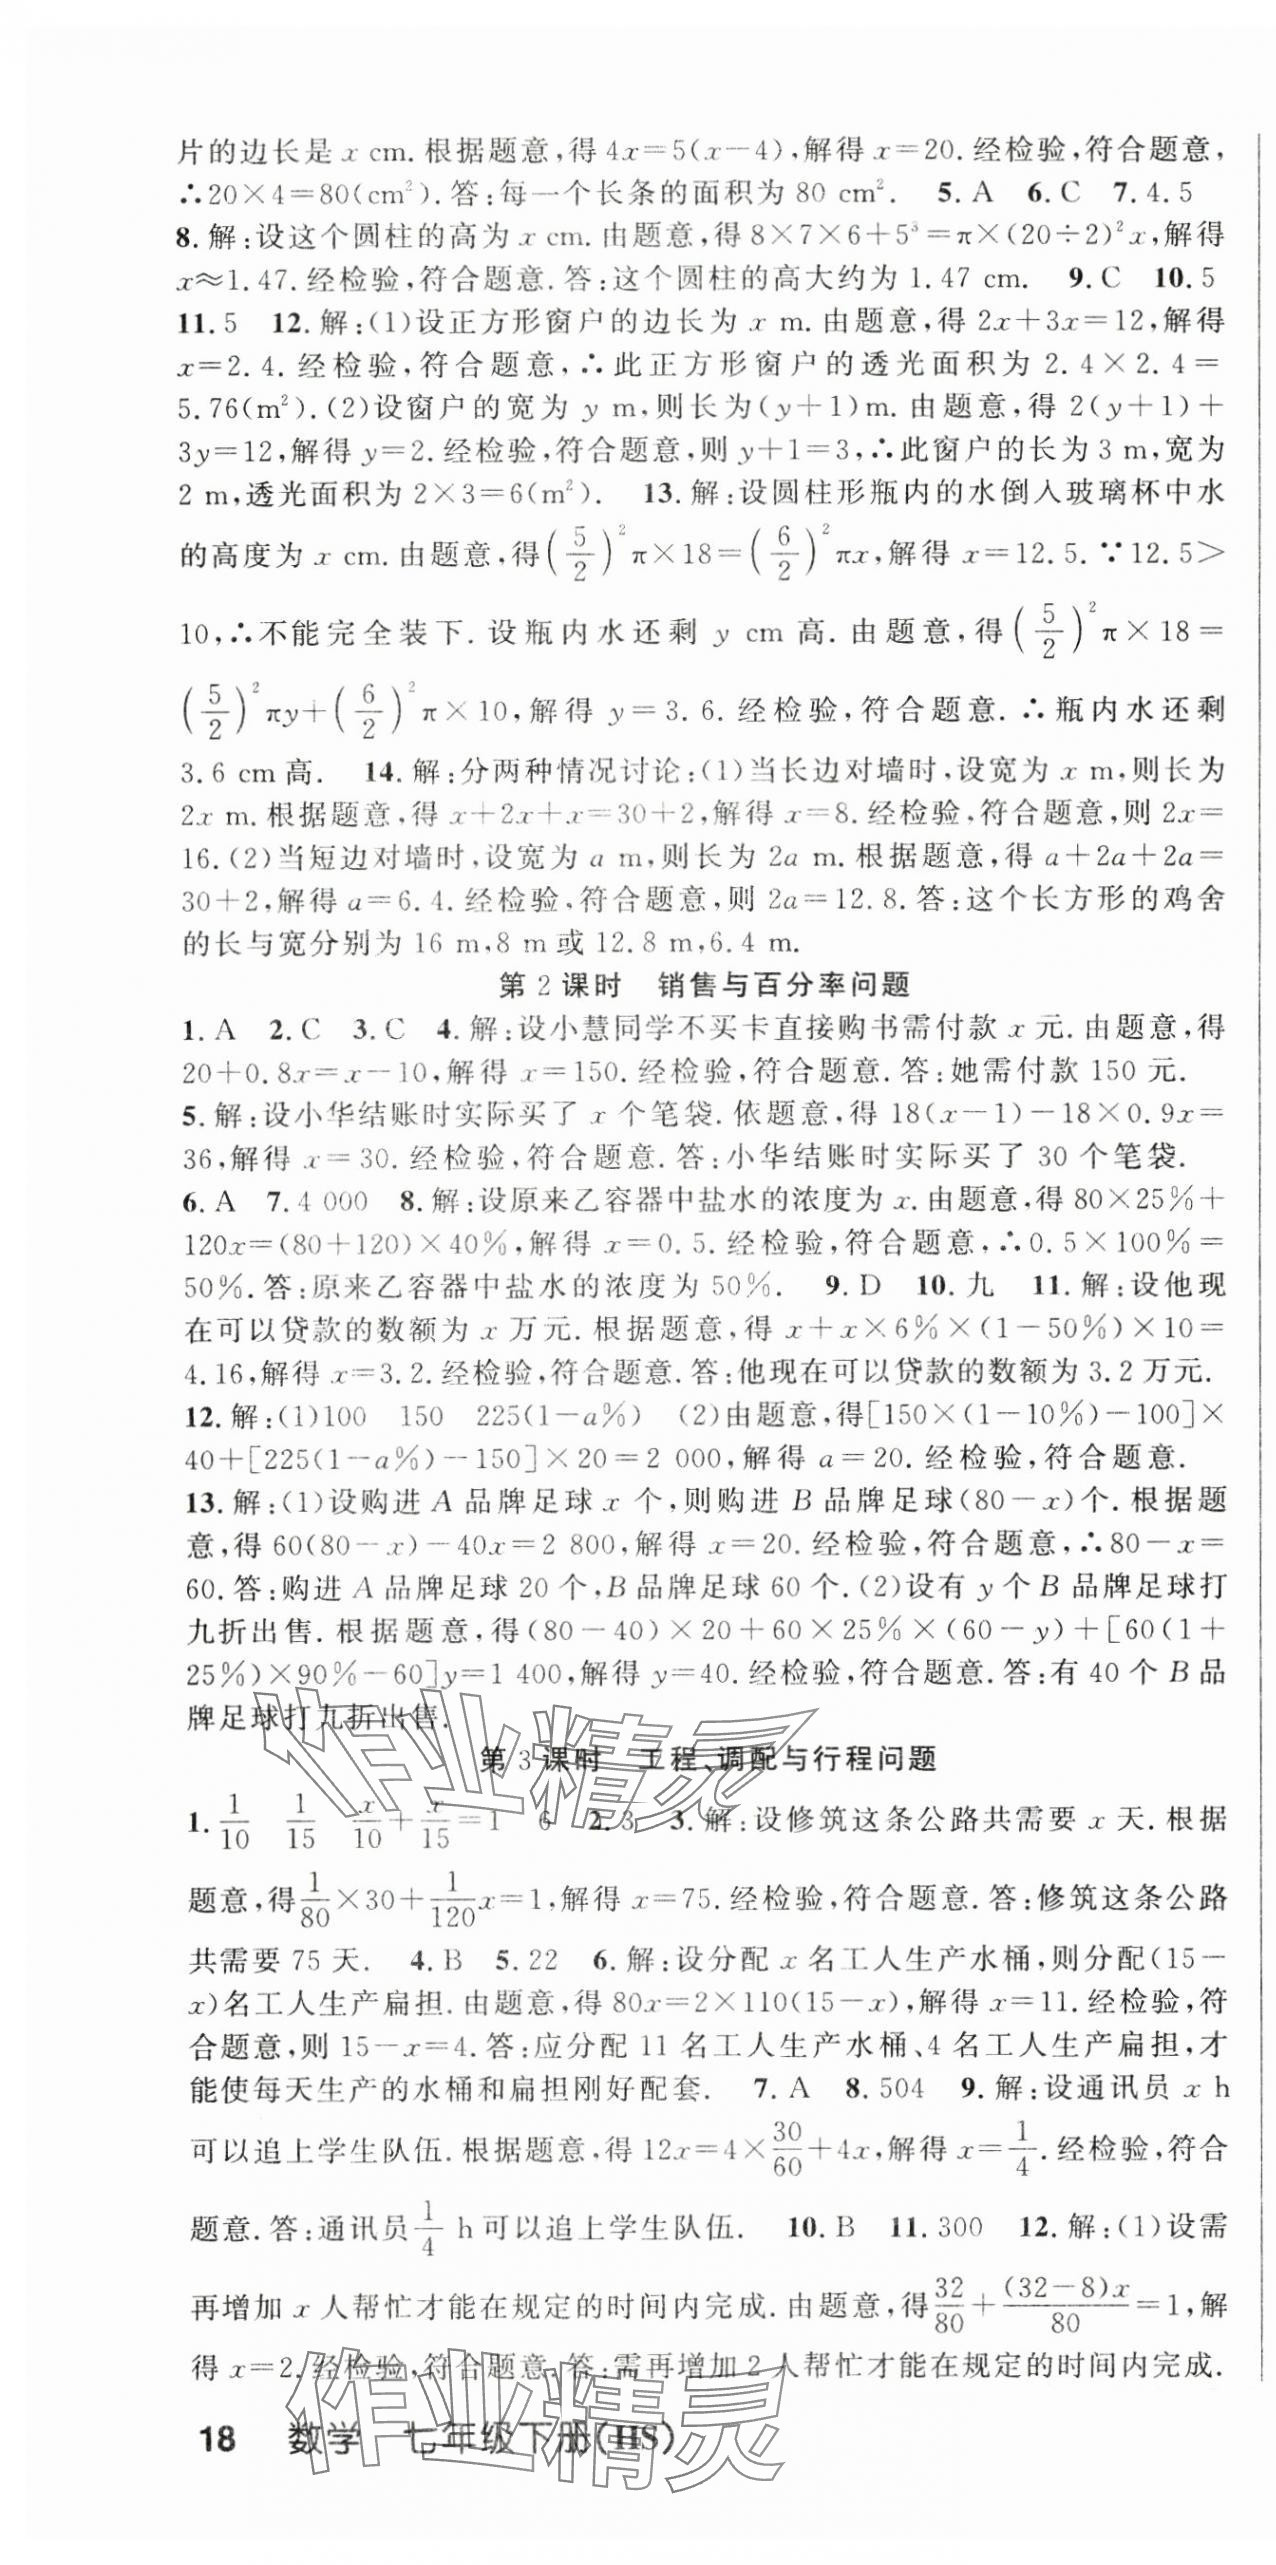 片的边长是 x cm. 根据题意,得 4x=5(x-4),解得 x=20. 经检验,符合题意,
∴20×4=80(cm²). 答:每一个长条的面积为 80 cm². 5. A 6. C 7. 4. 5
8. 解:设这个圆柱的高为 x cm. 由题意,得 8×7×6+5³=π×(20÷2)²x,解得
x≈1. 47. 经检验,符合题意. 答:这个圆柱的高大约为 1. 47 cm. 9. C 10. 5
11. 5 12. 解:(1)设正方形窗户的边长为 x m. 由题意,得 2x+3x=12,解得
x=2. 4. 经检验,符合题意,∴此正方形窗户的透光面积为 2. 4×2. 4=
5. 76(m²). (2)设窗户的宽为 y m,则长为(y+1)m. 由题意,得 2(y+1)+
3y=12,解得 y=2. 经检验,符合题意,则 y+1=3,∴此窗户的长为 3 m,宽为
2 m,透光面积为 2×3=6(m²). 13. 解:设圆柱形瓶内的水倒入玻璃杯中水
的高度为 x cm. 由题意,得(5/2)²π×18=(6/2)²πx,解得 x=12. 5. ∵12. 5>
10,∴不能完全装下. 设瓶内水还剩 y cm 高. 由题意,得(5/2)²π×18=
(5/2)²πy+(6/2)²π×10,解得 y=3. 6. 经检验,符合题意. ∴瓶内水还剩
3. 6 cm 高. 14. 解:分两种情况讨论:(1)当长边对墙时,设宽为 x m,则长为
2x m. 根据题意,得 x+2x+x=30+2,解得 x=8. 经检验,符合题意,则 2x=
16. (2)当短边对墙时,设宽为 a m,则长为 2a m. 根据题意,得 a+2a+2a=
30+2,解得 a=6. 4. 经检验,符合题意,则 2a=12. 8. 答:这个长方形的鸡舍
的长与宽分别为 16 m,8 m 或 12. 8 m,6. 4 m.
第 2 课时 销售与百分率问题
1. A 2. C 3. C 4. 解:设小慧同学不买卡直接购书需付款 x 元. 由题意,得
20+0. 8x=x-10,解得 x=150. 经检验,符合题意. 答:她需付款 150 元.
5. 解:设小华结账时实际买了 x 个笔袋. 依题意,得 18(x-1)-18×0. 9x=
36,解得 x=30. 经检验,符合题意. 答:小华结账时实际买了 30 个笔袋.
6. A 7. 4 000 8. 解:设原来乙容器中盐水的浓度为 x. 由题意,得 80×25%+
120x=(80+120)×40%,解得 x=0. 5. 经检验,符合题意,∴0. 5×100%=
50%. 答:原来乙容器中盐水的浓度为 50%. 9. D 10. 九 11. 解:设他现
在可以贷款的数额为 x 万元. 根据题意,得 x+x×6%×(1-50%)×10=
4. 16,解得 x=3. 2. 经检验,符合题意. 答:他现在可以贷款的数额为 3. 2 万元.
12. 解:(1)100 150 225(1-a%) (2)由题意,得[150×(1-10%)-100]×
40+[225(1-a%)-150]×20=2 000,解得 a=20. 经检验,符合题意.
13. 解:(1)设购进 A 品牌足球 x 个,则购进 B 品牌足球(80-x)个. 根据题
意,得 60(80-x)-40x=2 800,解得 x=20. 经检验,符合题意,∴80-x=
60. 答:购进 A 品牌足球 20 个,B 品牌足球 60 个. (2)设有 y 个 B 品牌足球打
九折出售. 根据题意,得(80-40)×20+60×25%×(60-y)+[60(1+
25%)×90%-60]y=1 400,解得 y=40. 经检验,符合题意. 答:有 40 个 B 品
牌足球打九折出售.
第 3 课时 工程、调配与行程问题
1. 1/10 1/15 x/10+x/15=1 6 2. 3 3. 解:设修筑这条公路共需要 x 天. 根据
题意,得1/80×30+1/120x=1,解得 x=75. 经检验,符合题意. 答:修筑这条公路
共需要 75 天. 4. B 5. 22 6. 解:设分配 x 名工人生产水桶,则分配(15-
x)名工人生产扁担. 由题意,得 80x=2×110(15-x),解得 x=11. 经检验,符
合题意,则 15-x=4. 答:应分配 11 名工人生产水桶、4 名工人生产扁担,才
能使每天生产的水桶和扁担刚好配套. 7. A 8. 504 9. 解:设通讯员 x h
可以追上学生队伍. 根据题意,得 12x=4×30/60+4x,解得 x=1/4. 经检验,符合
题意. 答:通讯员1/4 h 可以追上学生队伍. 10. B 11. 300 12. 解:(1)设需
再增加 x 人帮忙才能在规定的时间内完成. 由题意,得32/80+(32-8)x/80=1,解
得 x=2. 经检验,符合题意. 答:需再增加 2 人帮忙才能在规定的时间内完成.
18 数学 七年级下册(HS)
作业精灵
作业精灵